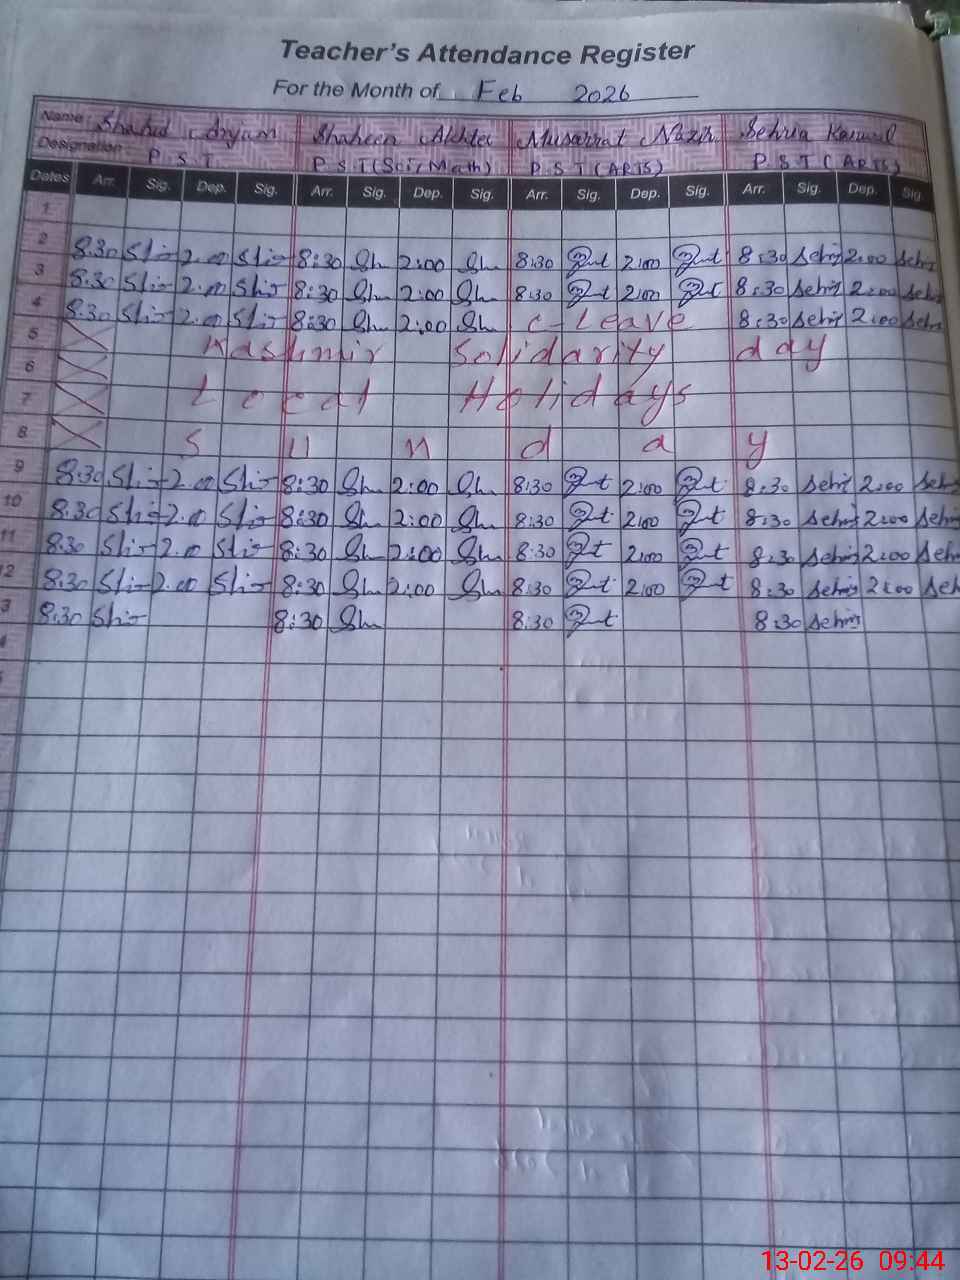 Teacher's Attendance Register
For the Month of Feb 2026
Name: Shahid Anjam Shaheen Akhter Musarrat Nazir Sehria Kanwal
Designation: P.S.T P.S.T(Sci/Math) P.S.T(ARTS) P.S.T(ARTS)
Dates Arr. Sig. Dep. Sig. Arr. Sig. Dep. Sig. Arr. Sig. Dep. Sig. Arr. Sig. Dep. Sig.
1
2 8.30 2.00 8:30 Sh 2:00 Sh 8:30 2:00 8:30 Sehr 2:00 Sehr
3 8:30 2.00 8:30 Sh 2:00 Sh 8:30 2:00 8:30 Sehr 2:00 Sehr
4 8:30 2.00 8:30 Sh 2:00 Sh C-Leave 8:30 Sehr 2:00 Sehr
5 Kashmir Solidarity day
6
7 Local Holidays
8 Sunday
9 8:30 2.00 8:30 Sh 2:00 Sh 8:30 2:00 8:30 Sehr 2:00 Sehr
10 8:30 2.00 8:30 Sh 2:00 Sh 8:30 2:00 8:30 Sehr 2:00 Sehr
11 8:30 2.00 8:30 Sh 2:00 Sh 8:30 2:00 8:30 Sehr 2:00 Sehr
12 8:30 2.00 8:30 Sh 2:00 Sh 8:30 2:00 8:30 Sehr 2:00 Seh
3 8:30 8:30 Sh 8:30 8:30 Sehr
4
13-02-26 09:44